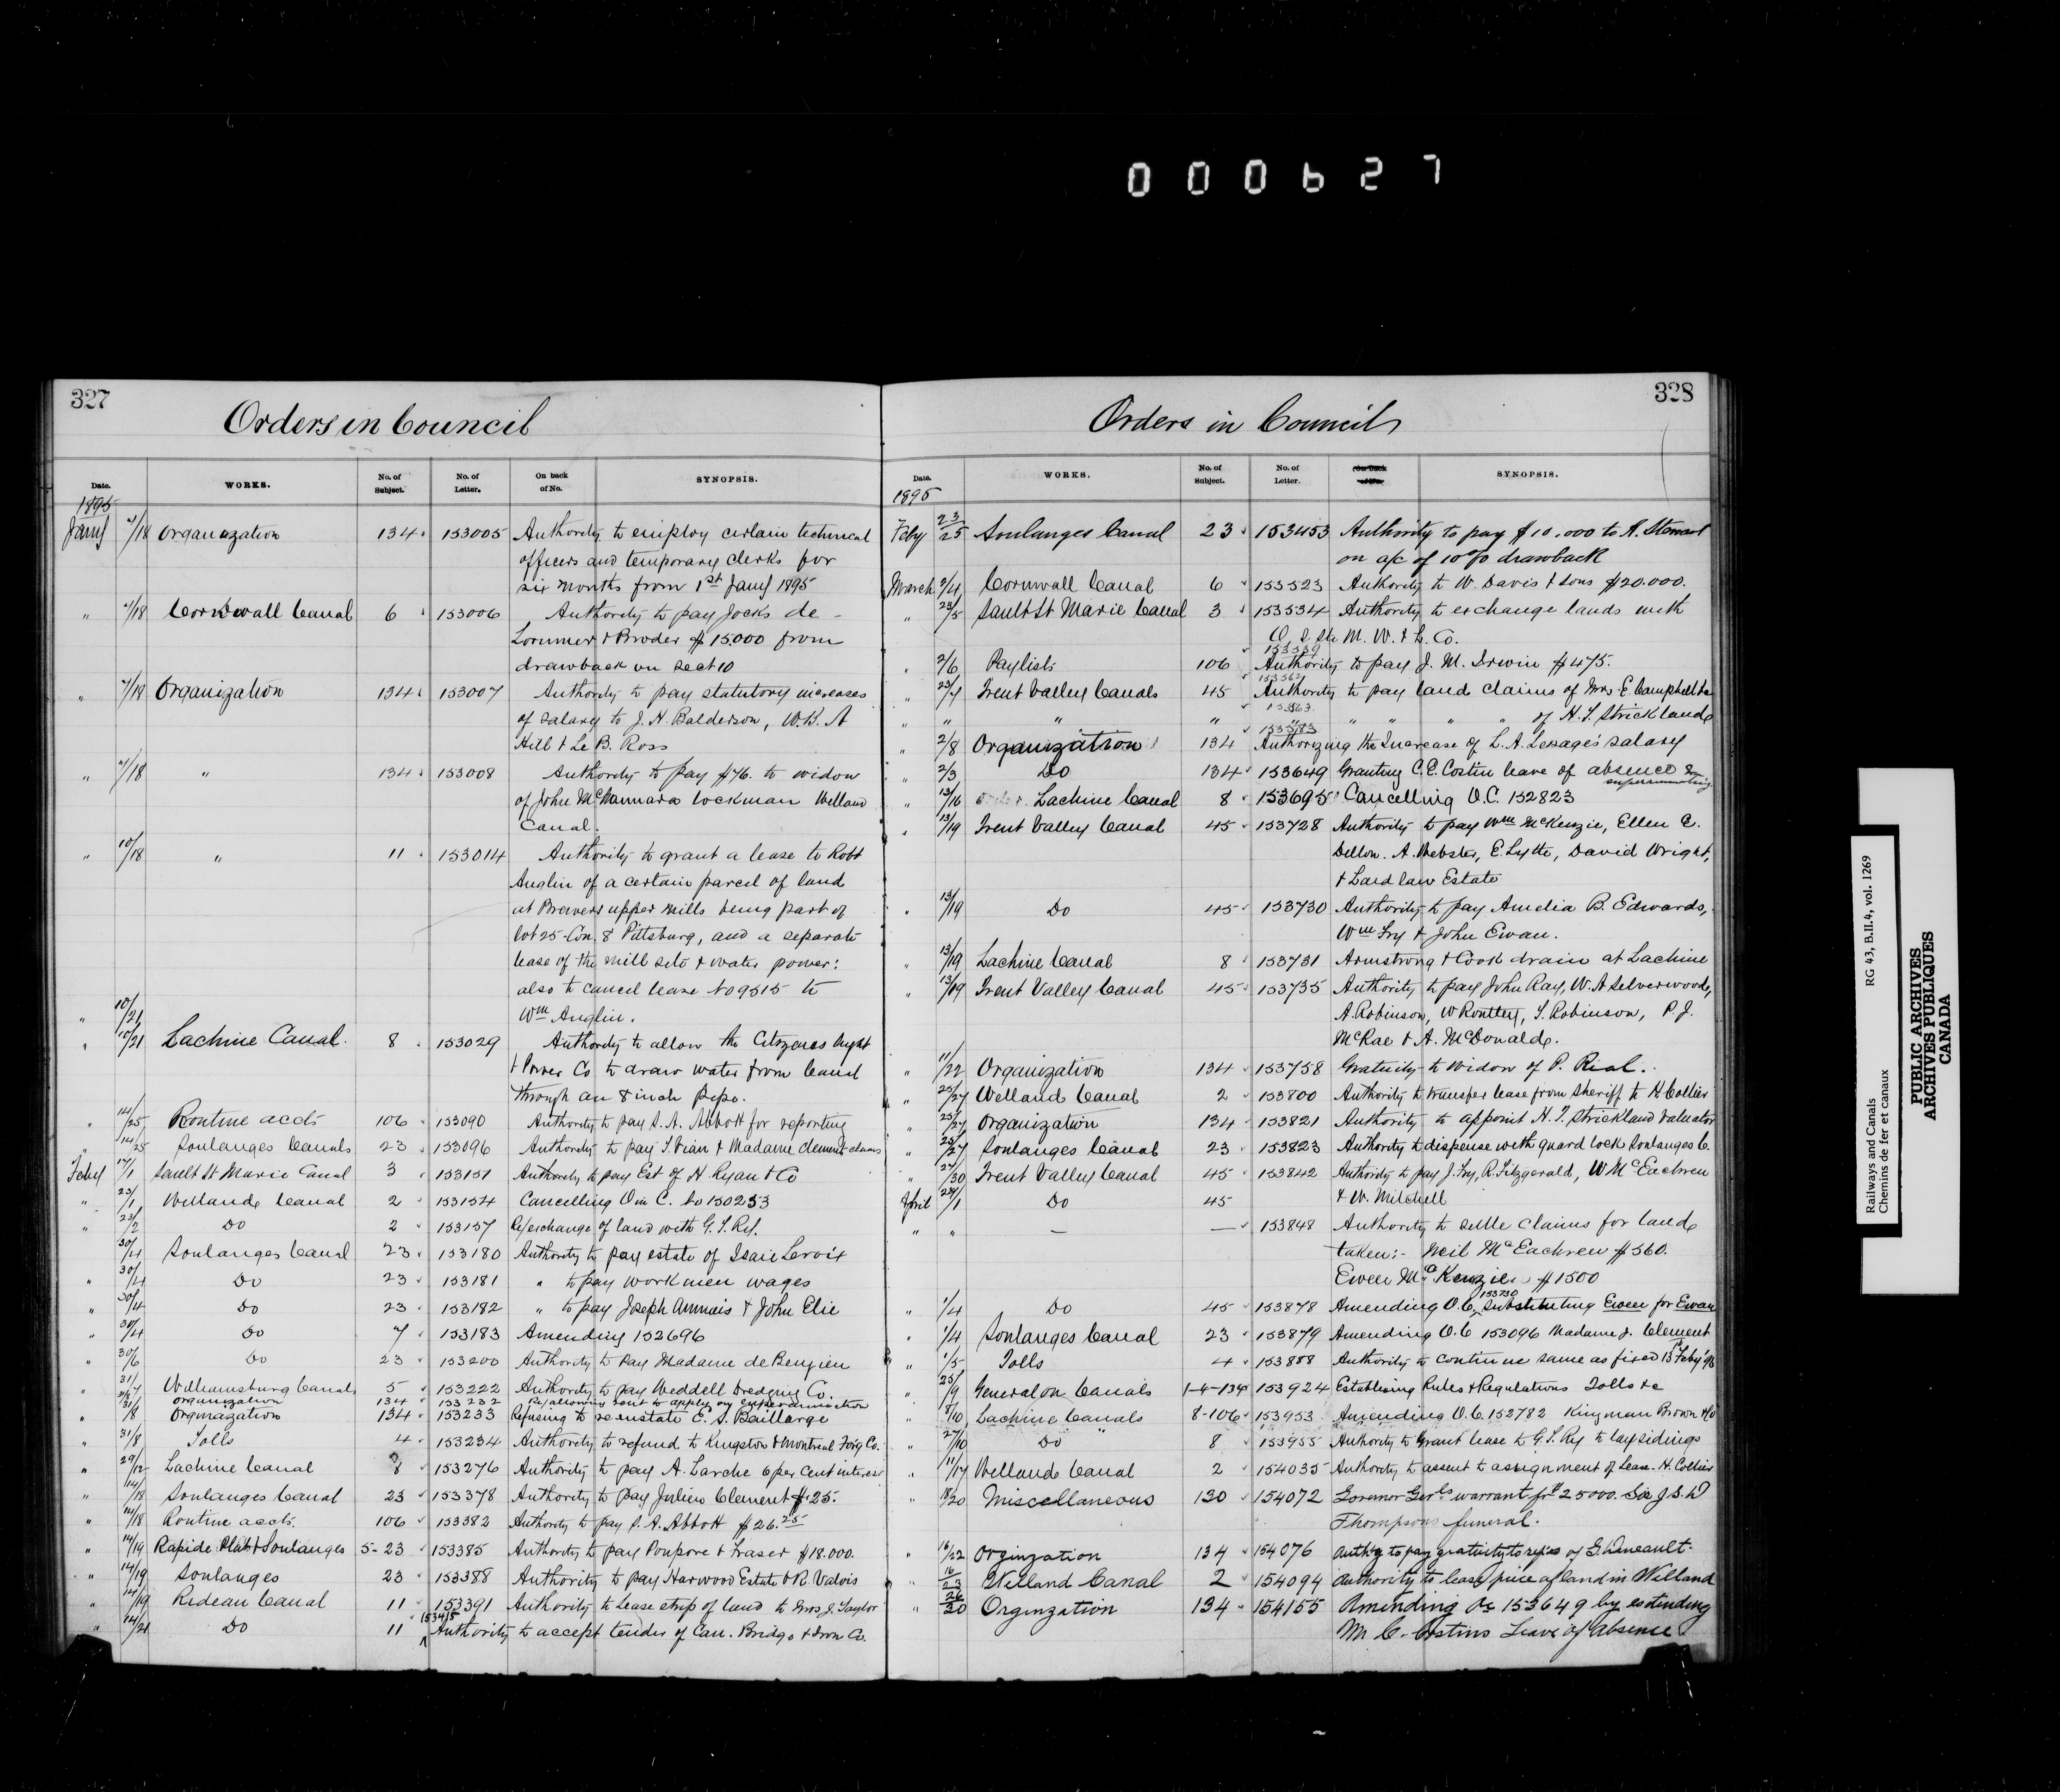 000627
327
Orders in Council
Date. WORKS. No. of Subject. No. of Letter. On back of No. SYNOPSIS.
1895
Jany /18 Organization 134 153005 Authority to employ certain technical
officers and temporary clerks for
six months from 1st Jany 1895
" /18 Cornwall Canal 6 153006 Authority to pay Jocks de
Lorimier & Broder $15.000 from
drawback on sect 10
" /18 Organization 134 153007 Authority to pay statutory increases
of salary to J. H. Balderson, W. K. A
Hill & Le B. Ross
" /18 " 134 153008 Authority to pay $76. to widow
of John McNamara lockman Welland
Canal.
" 10/18 " 11 153014 Authority to grant a lease to Robt
Anglin of a certain parcel of land
at Brewers upper mills being part of
lot 25 Con. 8 Pittsburg, and a separate
lease of the mill site & water power:
also to cancel lease No 9515 to
" 10/21 Wm Anglin.
" 10/21 Lachine Canal. 8 153029 Authority to allow the Citizens Light
& Power Co to draw water from Canal
through an 8 inch pipe.
" 14/25 Routine accts 106 153090 Authority to pay S. A. Abbott for reporting
" 14/25 Soulanges Canals 23 153096 Authority to pay Vian & Madame Clement claims
Feby 17/1 Sault St Marie Canal 3 153151 Authority to pay Est of H. Ryan & Co
" 23/1 Wellande Canal 2 153154 Cancelling O in C. No 150253
" 23/2 Do 2 153157 Re/exchange of land with G. T. Ry.
30/4 Soulanges Canal 23 153180 Authority to pay estate of Isaie Leroix
" 30/4 Do 23 153181 " to pay workmen wages
" 30/4 Do 23 153182 " to pay Joseph Amnais & John Elie
" 30/4 Do 7 153183 Amending 152696
" 30/6 Do 23 153200 Authority to pay Madame de Beujeu
" 31/7 Williamsburg Canals 5 153222 Authority to pay Weddell Dredging Co.
31/ Organization 134 153232 Re/allowing to apply on superannuation
" 31/8 Orgnaization 134 153233 Refusing to re-instate E. S. Baillarge
" 31/8 Tolls 4 153234 Authority to refund to Kingston & Montreal Forg Co.
" 29/12 Lachine Canal 8 153276 Authority to pay A. Larche 6 per cent interest
" 14/18 Soulanges Canal 23 153378 Authority to pay Julien Clement $25.
" 14/18 Routine accts. 106 153382 Authority to pay S. A. Abbott $26.25
" 14/19 Rapide Plat & Soulanges 5-23 153385 Authority to pay Poupore & Fraser $18.000.
" 14/19 Soulanges 23 153388 Authority to pay Harwood Estate & R. Valois
" 14/19 Rideau Canal 11 153391 Authority to Lease strip of land to Mrs J. Taylor
" 14/21 Do 11 153415 Authority to accept tender of Can. Bridge & Iron Co.
328
Orders in Council
Date. WORKS. No. of Subject. No. of Letter. On back of No. SYNOPSIS.
1895
Feby 23/25 Soulanges Canal 23 153453 Authority to pay $10.000 to A. Stewart
on a/c of 10% drawback
March 2/4 Cornwall Canal 6 153523 Authority to W. Davis & Sons $20.000.
" 23/5 Sault St Marie Canal 3 153534 Authority to exchange lands with
M. W. & L. Co.
" 2/6 Paylists 106 153559 Authority to pay J. M. Irwin $475.
" 23/7 Trent Valley Canals 45 153562 Authority to pay land claims of Mrs E. Campbell &c
" " " " 153563 " " " " of H. T. Stricklande
" 2/8 Organization 134 153583 Authorizing the Increase of L. A. Lesage's salary
" 2/3 Do 134 153649 Granting C. E. Costin leave of absence & superannuating
" 13/16 Lachine Canal 8 153695 Cancelling O.C. 152823
" 13/19 Trent Valley Canal 45 153728 Authority to pay Wm McKenzie, Ellen C.
Dellon. A. Webster, E. Lytte, David Wright,
& Laidlaw Estate
" 13/19 Do 45 153730 Authority to pay Amelia B. Edwards,
Wm Fry & John Ewan.
" 13/19 Lachine Canal 8 153731 Armstrong & Cook drain at Lachine
" 13/19 Trent Valley Canal 45 153735 Authority to pay John Ray, W. A Silverwoode,
A. Robinson, W Routley, T. Robinson, P. J.
McRae & A. McDonalde.
" 11/22 Organization 134 153758 Gratuity to widow of P. Rial.
" 25/27 Welland Canal 2 153800 Authority to transfer lease from Sheriff to H. Collier
" 25/27 Organization 134 153821 Authority to appoint H. T. Strickland valuator
" 25/27 Soulanges Canal 23 153823 Authority to dispense with guard lock Soulanges C.
" 27/30 Trent Valley Canal 45 153842 Authority to pay J. Fry, R. Fitzgerald, W McEachren
April 29/1 Do 45 & W. Mitchell
" " — — 153848 Authority to settle claims for lande
taken:- Neil McEachren $560.
Ewen McKenzie $1500
" 1/4 Do 45 153878 Amending O.C. 153730 substituting Ewen for Ewan
" 1/4 Soulanges Canal 23 153879 Amending O.C 153096 Madame J. Clement
" 1/5 Tolls 4 153888 Authority to continue same as fixed 13th Feby '93
" 25/9 General on Canals 1-4-134 153924 Establising Rules & Regulations Tolls &c
" 8/10 Lachine Canals 8-106 153953 Amending O.C. 152782 Kingman Brown & Co
" 27/10 Do " 8 153955 Authority to Grant lease to G. T. Ry to lay sidings
" 11/17 Wellande Canal 2 154035 Authority to assent to assignment of Lease - H. Collier
" 18/20 Miscellaneous 130 154072 Governor Genls warrant for $25000. Sir J. S. D
Thompsons funeral.
" 16/22 Orginzation 134 154076 Authy to pay gratuity to of G. Dineault
" 16/23 Welland Canal 2 154094 Authority to lease piece of land in Welland
" 26/30 Orginzation 134 154155 Amending Oc 153649 by extending
Mr C. Costins Leave of Absence
Railways and Canals RG 43, B.II.4, vol. 1269
Chemins de fer et canaux
PUBLIC ARCHIVES
ARCHIVES PUBLIQUES
CANADA